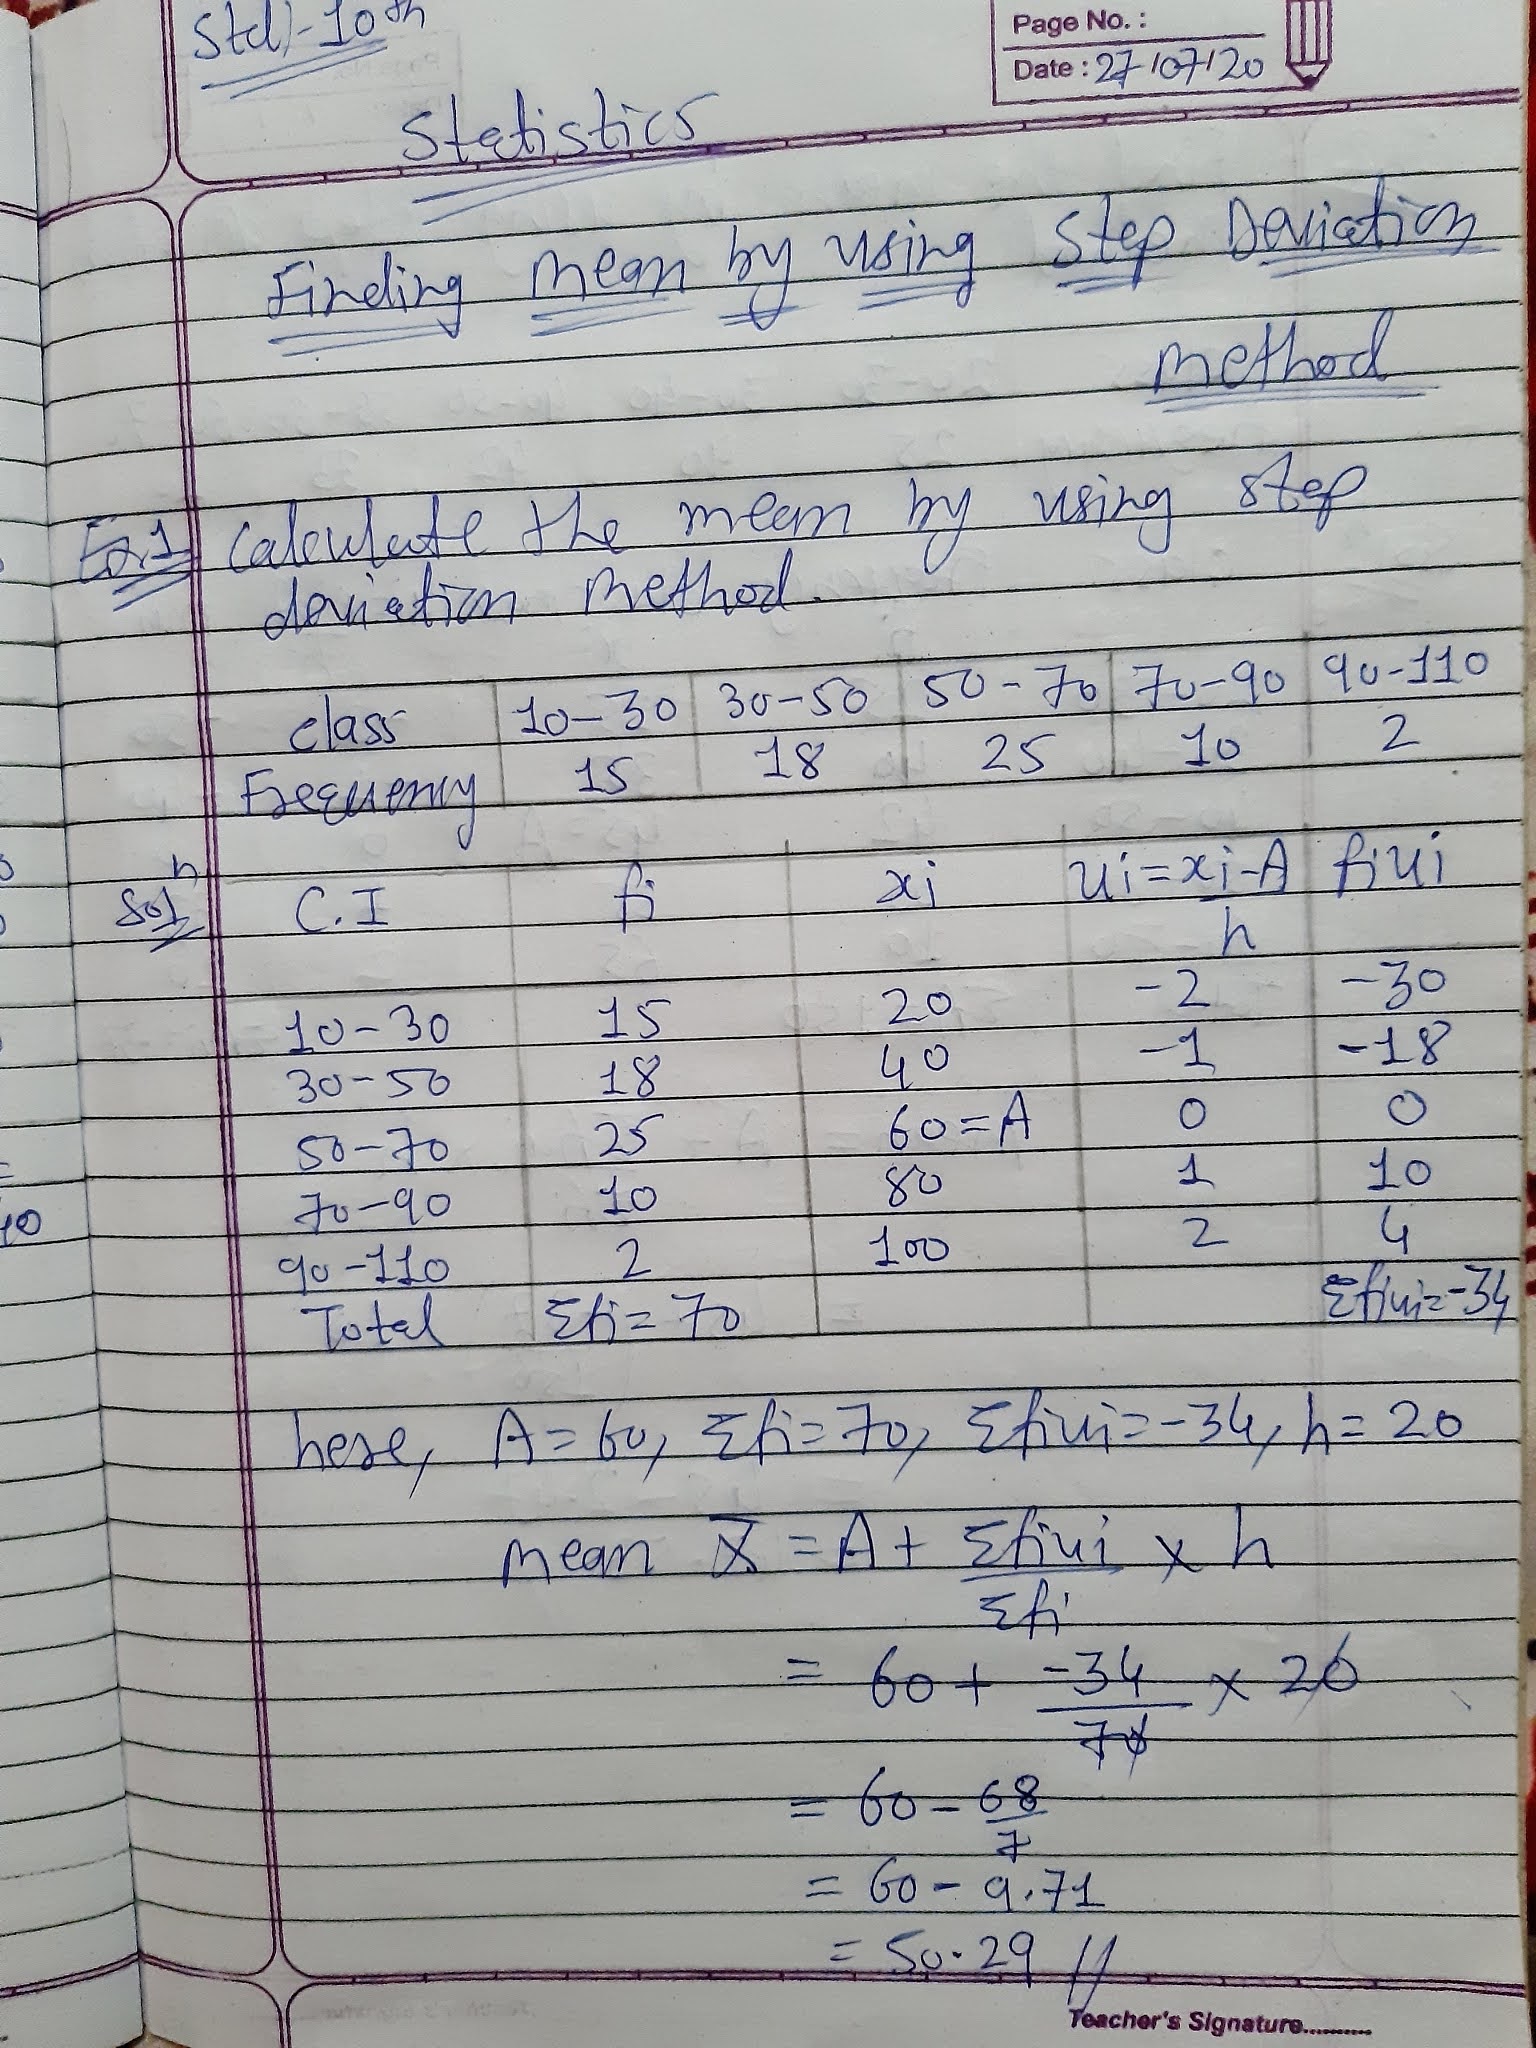 Std:-10th
Page No. :
Date : 27/07/20
Statistics
Finding mean by using Step Deviation
method
Ex.1 Calculate the mean by using step
deviation method.
class 10-30 30-50 50-70 70-90 90-110
Frequency 15 18 25 10 2
Solⁿ C.I fi xi ui=xi-A/h fiui
10-30 15 20 -2 -30
30-50 18 40 -1 -18
50-70 25 60=A 0 0
70-90 10 80 1 10
90-110 2 100 2 4
Total Σfi=70 Σfiui=-34
here, A=60, Σfi=70, Σfiui=-34, h=20
mean X̄ = A+ Σfiui/Σfi × h
= 60 + -34/70 × 20
= 60 - 68/7
= 60 - 9.71
= 50.29 //
Teacher's Signature..........